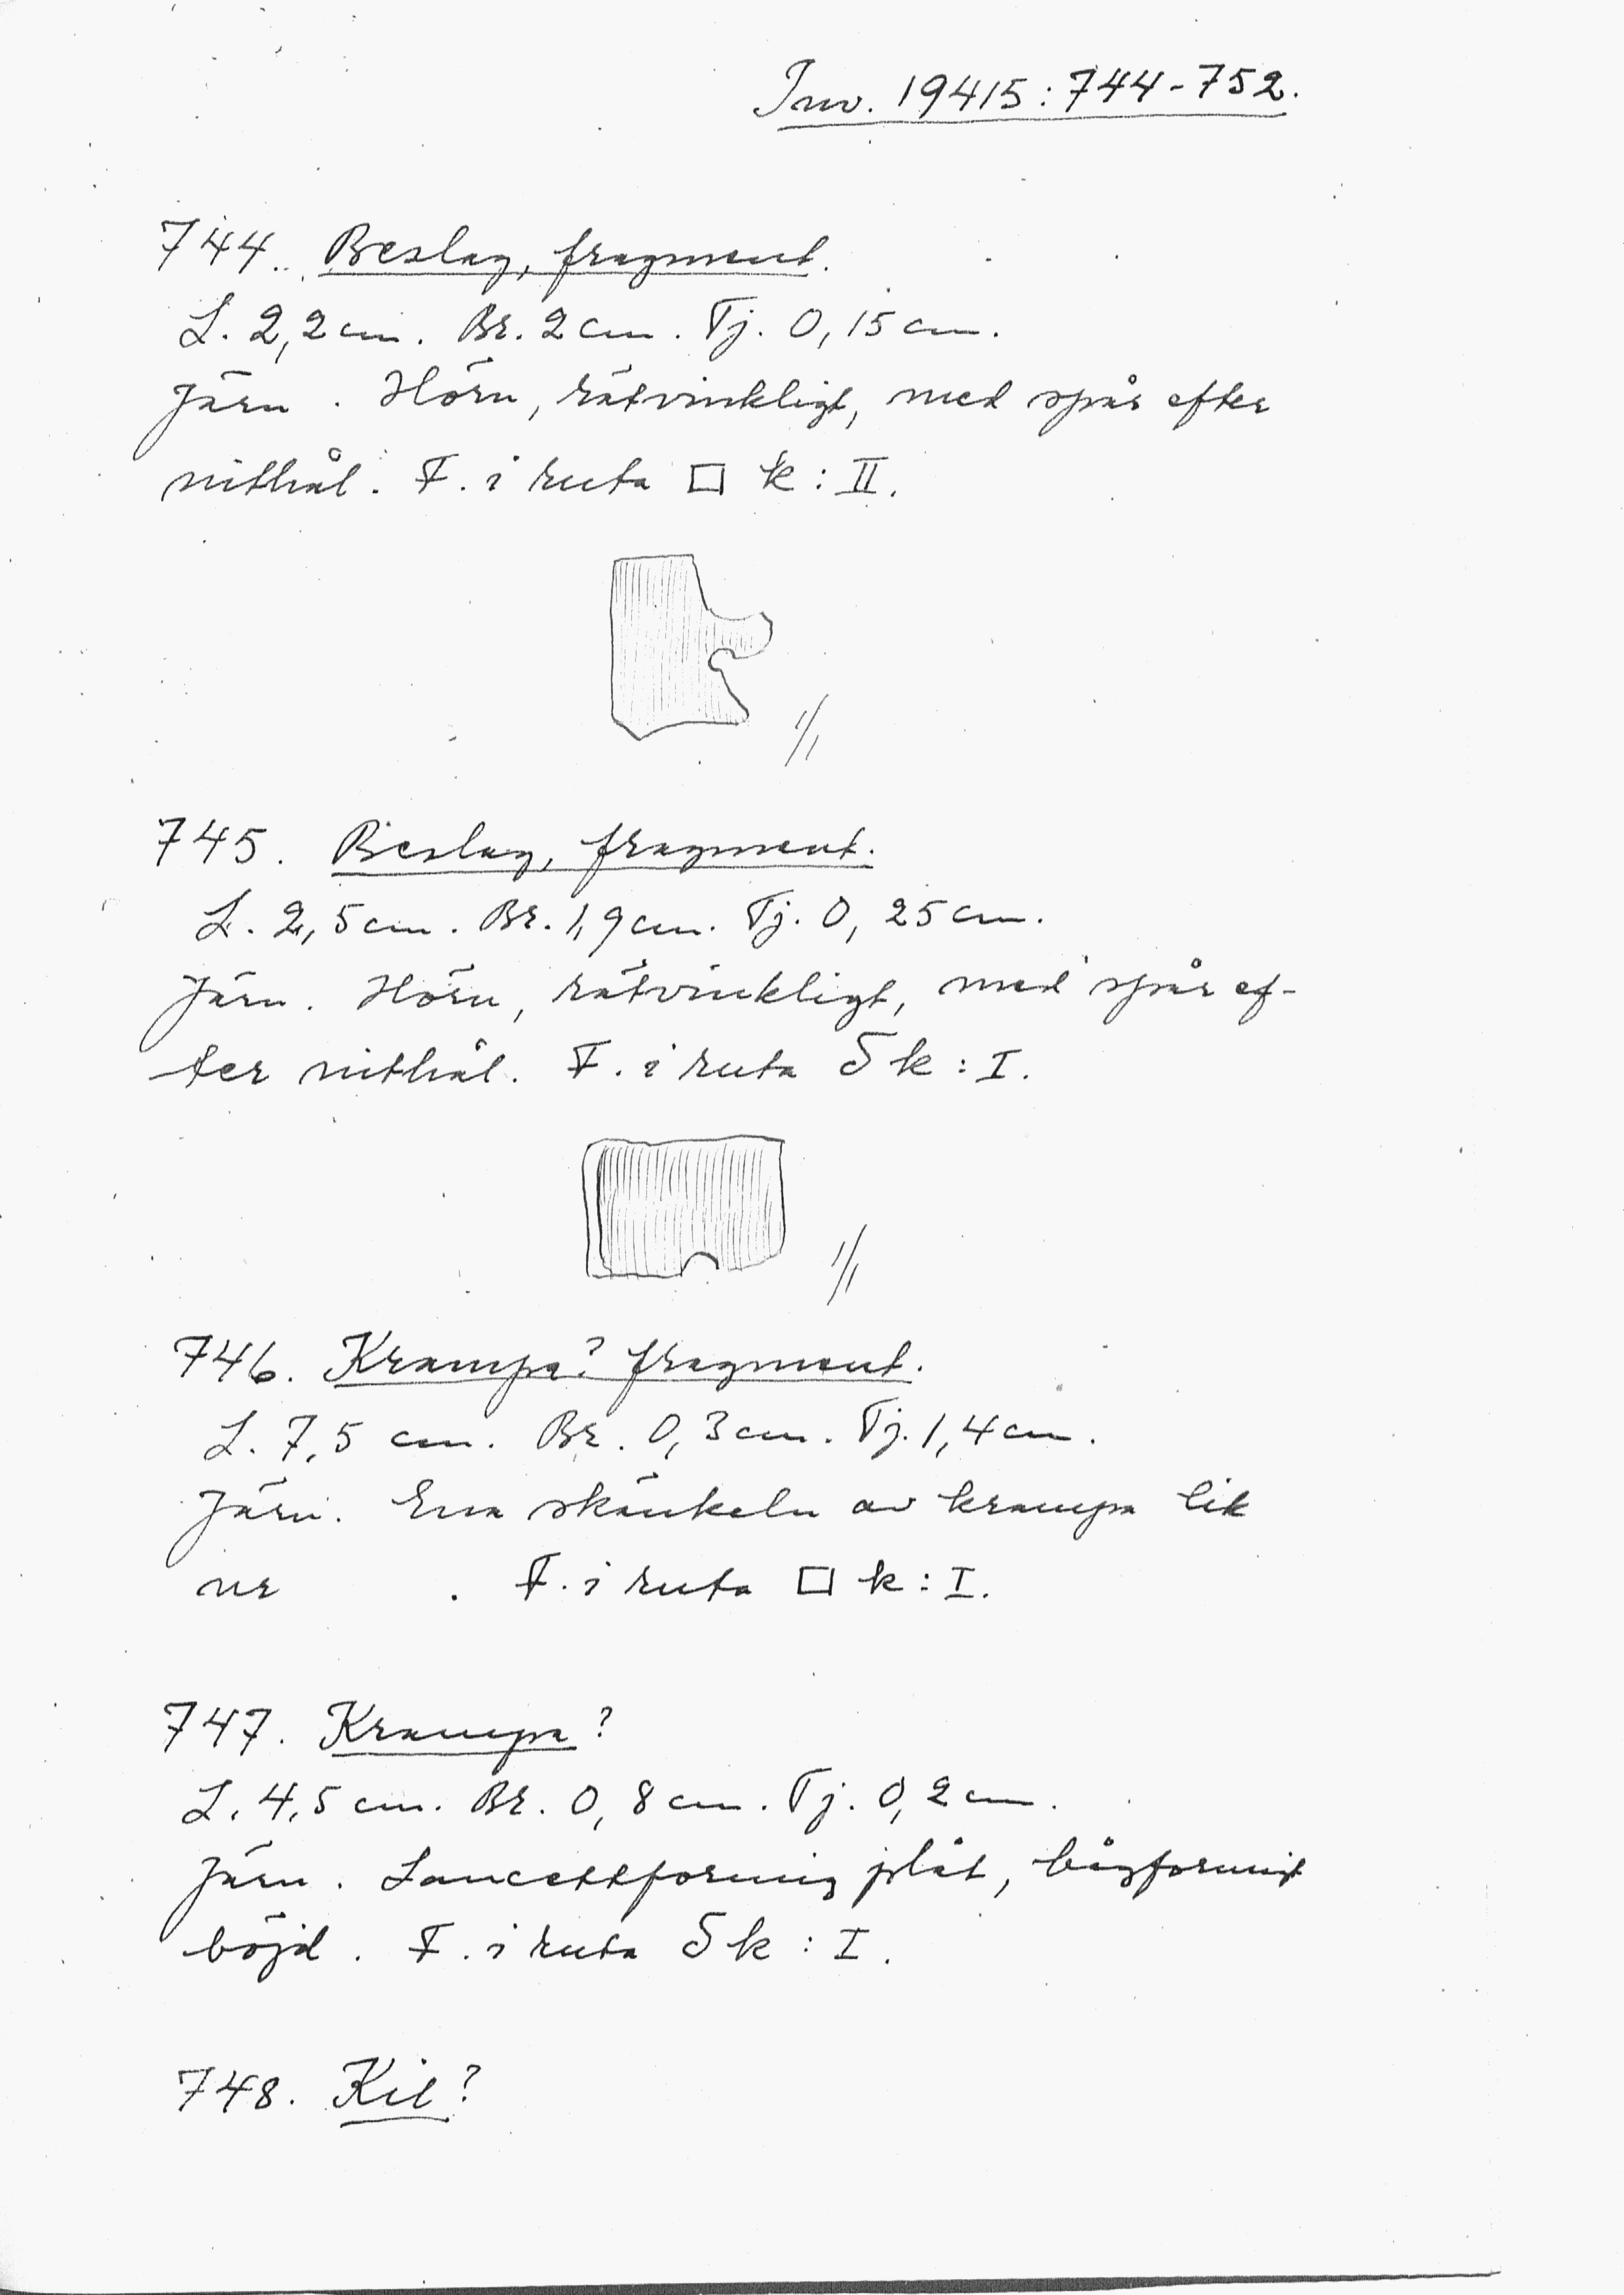 Inv. 19415:744-752.
744. Beslag, fragment.
L. 2,2 cm. Br. 2 cm. Tj. 0,15 cm.
Järn. Hörn, rätvinkligt, med spår efter
nithål. F. i ruta □ k: II.
1/1
745. Beslag, fragment.
L. 2,5 cm. Br. 1,9 cm. Tj. 0,25 cm.
Järn. Hörn, rätvinkligt, med spår ef-
ter nithål. F. i ruta S k: I.
1/1
746. Krampa? fragment.
L. 7,5 cm. Br. 0,3 cm. Tj. 1,4 cm.
Järn. Ena skänkeln av krampa lik
nr . F. i ruta □ k: I.
747. Krampa?
L. 4,5 cm. Br. 0,8 cm. Tj. 0,2 cm.
Järn. Lancettformig plåt, bågformigt
böjd. F. i ruta S k: I.
748. Kil?